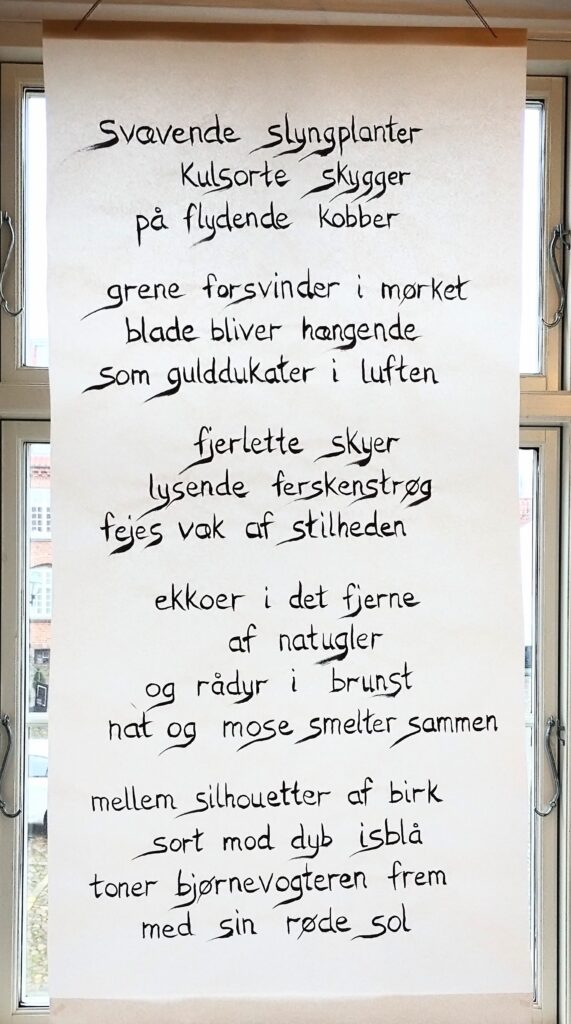 Svævende slyngplanter
Kulsorte skygger
på flydende kobber
grene forsvinder i mørket
blade bliver hængende
som gulddukater i luften
fjerlette skyer
lysende ferskenstrøg
fejes væk af stilheden
ekkoer i det fjerne
af natugler
og rådyr i brunst
nat og mose smelter sammen
mellem silhouetter af birk
sort mod dyb isblå
toner bjørnevogteren frem
med sin røde sol